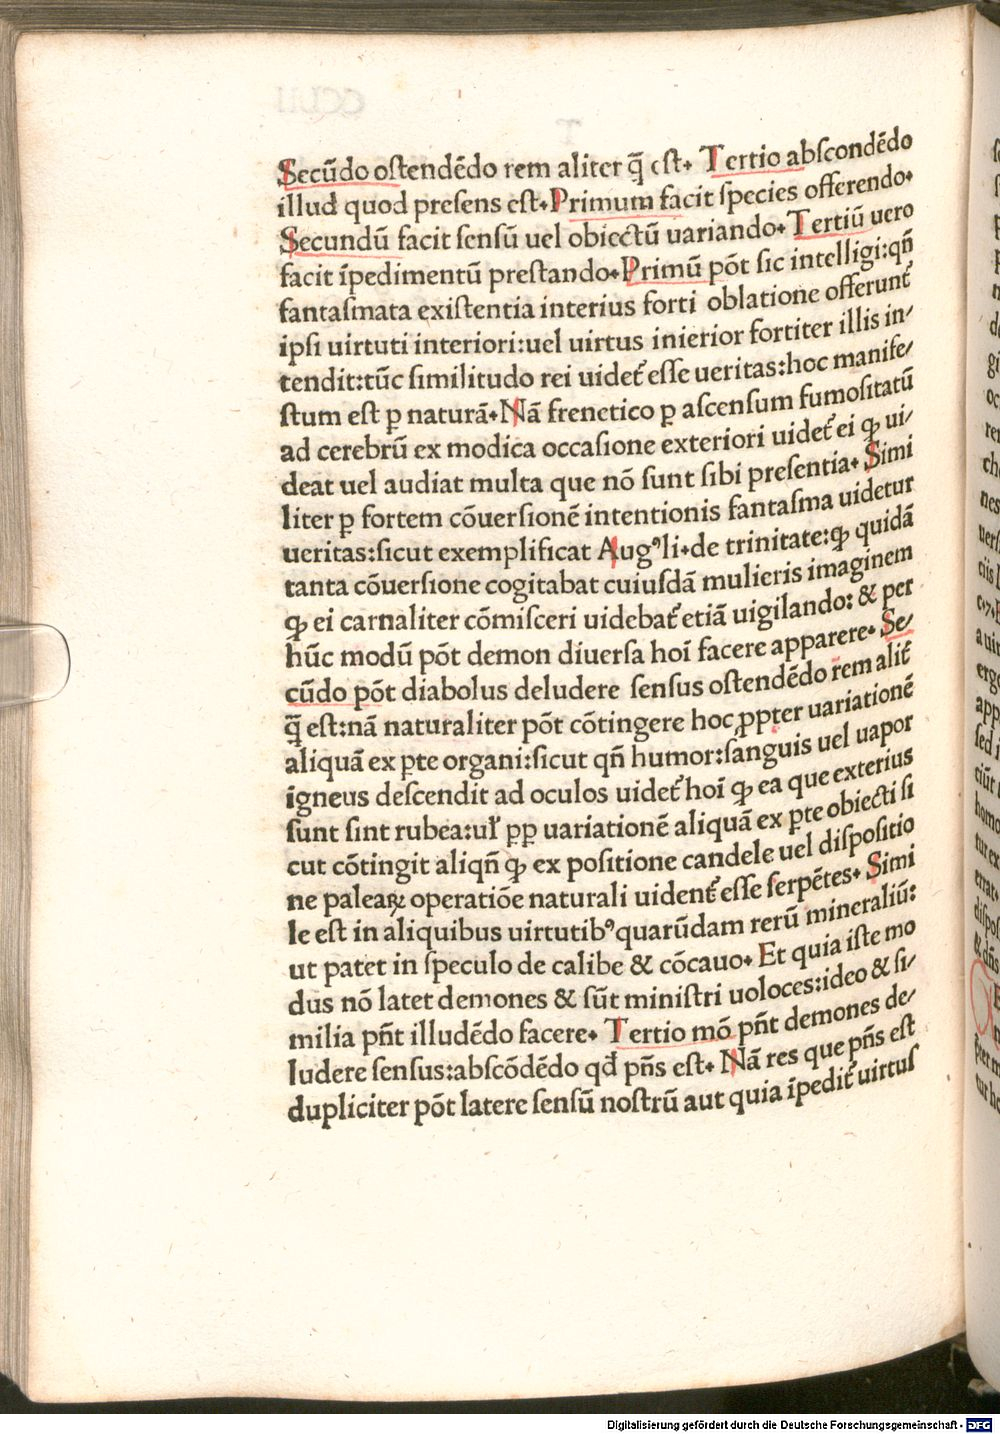 Secũdo oſtendẽdo rem aliter q̃ eſt. Tertio abſcondẽdo
illud quod preſens eſt. Primum facit ſpecies offerendo.
Secundũ facit ſenſũ uel obiectũ uariando. Tertiũ uero
facit ĩpedimentũ preſtando. Primũ põt ſic intelligi: qñ
fantaſmata exiſtentia interius forti oblatione offerunt᷑
ipſi uirtuti interiori: uel uirtus inierior fortiter illis in⸗
tendit: tũc ſimilitudo rei uidet᷑ eſſe ueritas: hoc manife⸗
ſtum eſt ꝑ naturã. Nã frenetico ꝑ aſcenſum fumoſitatũ
ad cerebrũ ex modica occaſione exteriori uidet᷑ ei ꝙ ui⸗
deat uel audiat multa que nõ ſunt ſibi preſentia. Simi
liter ꝑ fortem cõuerſionẽ intentionis fantaſma uidetur
ueritas: ſicut exemplificat Augꝰ li. de trinitate: ꝙ quidã
tanta cõuerſione cogitabat cuiuſdã mulieris imaginem
ꝙ ei carnaliter cõmiſceri uidebat᷑ etiã uigilando: & per
hũc modũ põt demon diuerſa hoĩ facere apparere. Se⸗
cũdo põt diabolus deludere ſenſus oſtendẽdo rem alit᷑
q̃ eſt: nã naturaliter põt cõtingere hoc ꝓpter uariationẽ
aliquã ex ꝑte organi: ſicut qñ humor: ſanguis uel uapor
igneus deſcendit ad oculos uidet᷑ hoĩ ꝙ ea que exterius
ſunt ſint rubea: ul̃ ꝓp uariationẽ aliquã ex ꝑte obiecti ſi
cut cõtingit aliqñ ꝙ ex poſitione candele uel diſpoſitio
ne paleaꝝ operatiõe naturali uident᷑ eſſe ſerpẽtes. Simi
le eſt in aliquibus uirtutibꝰ quarũdam rerũ mineraliũ:
ut patet in ſpeculo de calibe & cõcauo. Et quia iſte mo
dus nõ latet demones & ſũt miniſtri uoloces: ideo & ſi⸗
milia pñt illudẽdo facere. Tertio mõ pñt demones de⸗
ludere ſenſus: abſcõdẽdo qd̃ pñs eſt. Nã res que pñs eſt
dupliciter põt latere ſenſũ noſtrũ aut quia ĩpedit᷑ uirtuſ
Digitalisierung gefördert durch die Deutsche Forschungsgemeinschaft - DFG